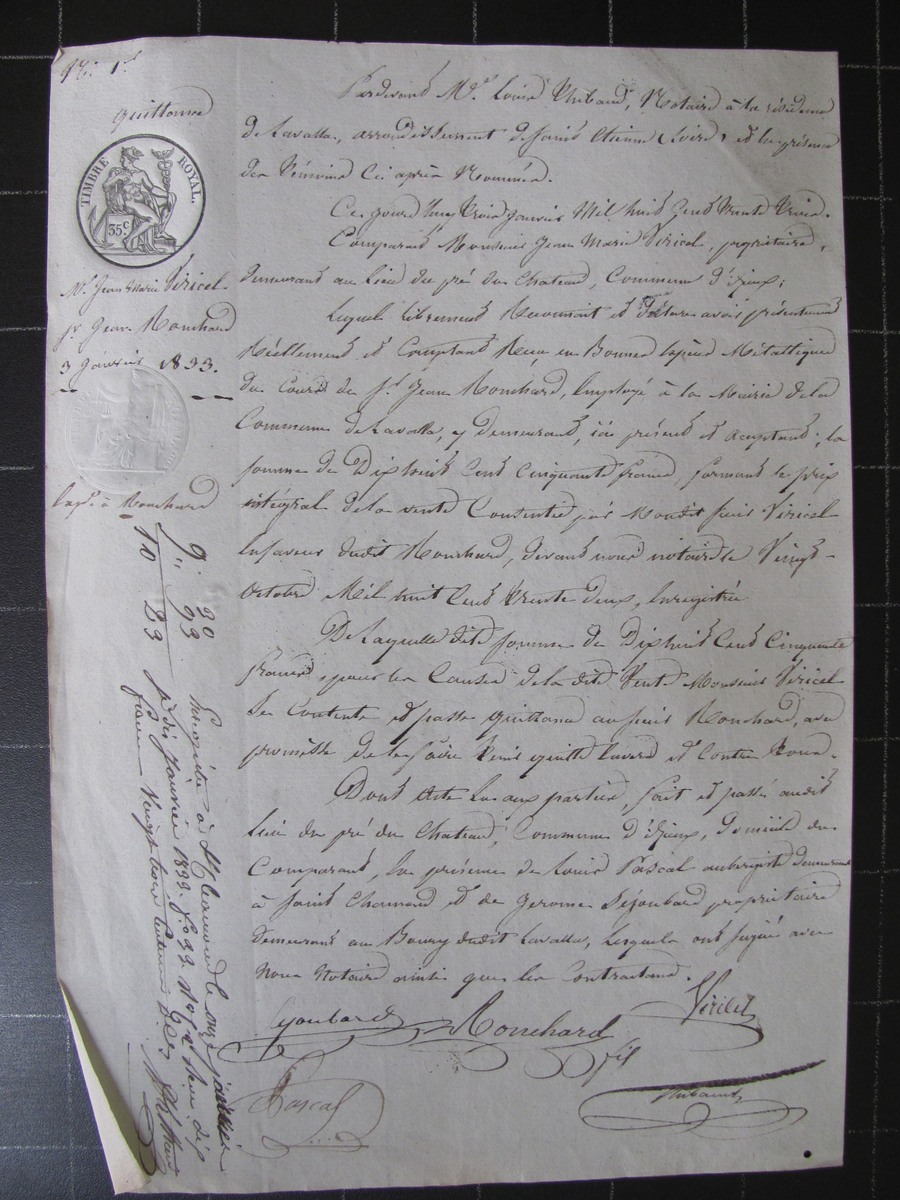 N.° 1.er
quittance
TIMBRE ROYAL.
35c
Mr. Jean Marie Viricel
pr. Jean Monchard
3 Janvier 1833.
Exp. à Monchard
Pardevant Me. Louis Thibaud, Notaire à la résidence
de Lavalla, arrondissement de saint Etienne (Loire) et en présence
des témoins ci après Nommés.
Ce jourd'huy trois janvier Mil huit Cent trente trois.
Comparait Monsieur Jean Marie Viricel, propriétaire,
demeurant au lieu du pré du Chateau, Commune d'Izieux;
Lequel librement Reconnait et Déclare avoir présentement
Réellement et Comptant Reçu en Bonnes Espèces Métalliques
du Cours de sr. Jean Monchard, Employé à la Mairie de la
Commune de Lavalla, y demeurant, ici présent et acceptant; la
somme de Dix huit Cent Cinquante francs, formant le prix
intégral de la vente Consentie par Mondit sieur Viricel
En faveur dudit Monchard, devant nous notaire le Vingt
Octobre Mil huit Cent trente deux, Enregistrée
De laquelle dite somme de Dix huit Cent Cinquante
francs, pour les Causes de la dite Vente Monsieur Viricel
Se Contente et passe quittance au sieur Monchard, avec
promesse de le faire tenir quitte Envers et Contre tous.
Dont Acte Lu aux parties, fait et passé audit
lieu du pré du Chateau, Commune d'Izieux, Domicile du
Comparant, En présence de Louis Pascal aubergiste demeurant
à saint Chamond et de Gerome Séjoubard propriétaire
demeurant au Bourg dudit Lavalla, Lesquels ont signé avec
Nous Notaire ainsi que les Contractans.
Séjoubard Monchard Viricel
fils
Pascal Thibaud
9. 30
93
10 23
Enregistré à St Chamond le onze janvier
1833. fo 99.